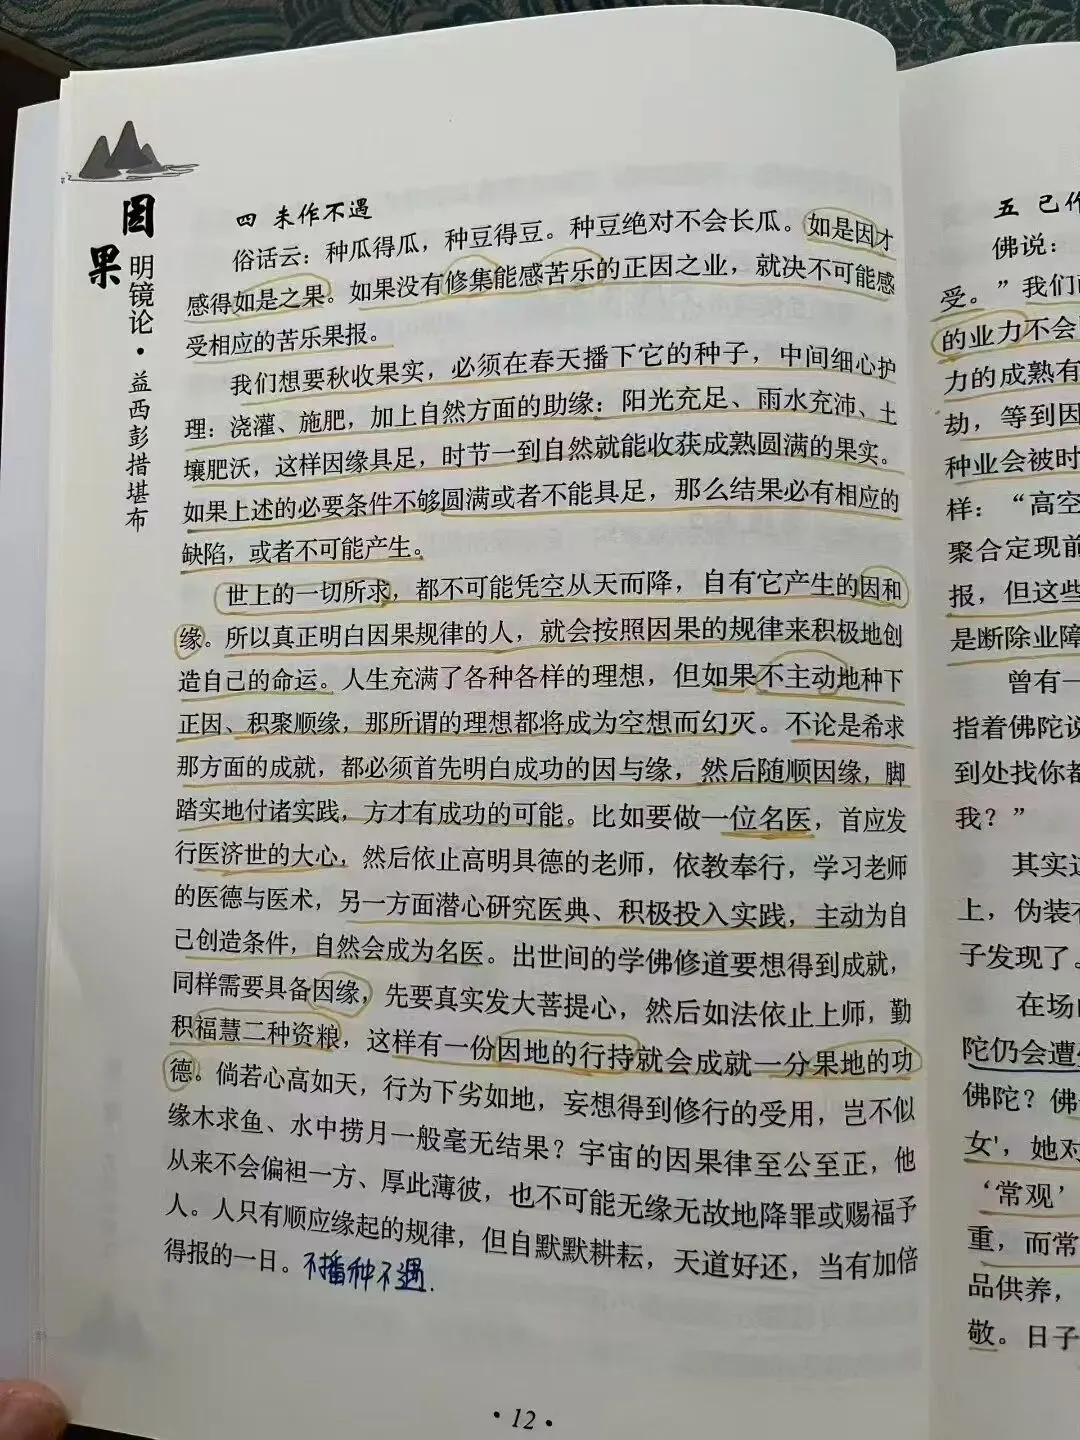 因果
明镜论·益西彭措堪布
四 未作不遇
俗话云：种瓜得瓜，种豆得豆。种豆绝对不会长瓜。如是因才
感得如是之果。如果没有修集能感苦乐的正因之业，就决不可能感
受相应的苦乐果报。
我们想要秋收果实，必须在春天播下它的种子，中间细心护
理：浇灌、施肥，加上自然方面的助缘：阳光充足、雨水充沛、土
壤肥沃，这样因缘具足，时节一到自然就能收获成熟圆满的果实。
如果上述的必要条件不够圆满或者不能具足，那么结果必有相应的
缺陷，或者不可能产生。
世上的一切所求，都不可能凭空从天而降，自有它产生的因和
缘。所以真正明白因果规律的人，就会按照因果的规律来积极地创
造自己的命运。人生充满了各种各样的理想，但如果不主动地种下
正因、积聚顺缘，那所谓的理想都将成为空想而幻灭。不论是希求
那方面的成就，都必须首先明白成功的因与缘，然后随顺因缘，脚
踏实地付诸实践，方才有成功的可能。比如要做一位名医，首应发
行医济世的大心，然后依止高明具德的老师，依教奉行，学习老师
的医德与医术，另一方面潜心研究医典、积极投入实践，主动为自
己创造条件，自然会成为名医。出世间的学佛修道要想得到成就，
同样需要具备因缘，先要真实发大菩提心，然后如法依止上师，勤
积福慧二种资粮，这样有一份因地的行持就会成就一分果地的功
德。倘若心高如天，行为下劣如地，妄想得到修行的受用，岂不似
缘木求鱼、水中捞月一般毫无结果？宇宙的因果律至公至正，他
从来不会偏袒一方、厚此薄彼，也不可能无缘无故地降罪或赐福予
人。人只有顺应缘起的规律，但自默默耕耘，天道好还，当有加倍
得报的一日。不播种不遇.
·12·
五 已作
佛说：
受。”我们
的业力不会
力的成熟有
劫，等到因
种业会被时
样：“高空
聚合定现前
报，但这些
是断除业障
曾有一
指着佛陀说
到处找你都
我？”
其实这
上，伪装不
子发现了。
在场
陀仍会遭
佛陀？佛
女'，她对
‘常观’
重，而常
品供养，
敬。日子